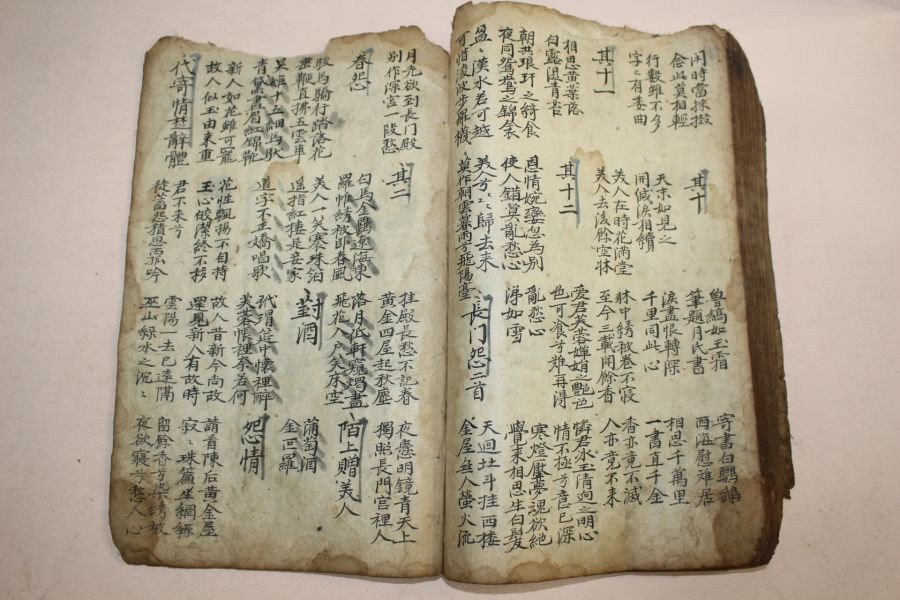 閑時當採掇
念此莫相輕
其十
魯縞如玉霜
筆題月氏書
寄書白鸚鵡
西海慰離居
行數雖不多
字〻有委曲
天末如見之
開緘淚相續
淚盡恨轉深
千里同此心
相思千萬里
一書直千金
其十一
美人在時花滿堂
美人去後餘空牀
牀中綉被卷不寢
至今三載聞餘香
香亦竟不滅
人亦竟不來
相思黃葉落
白露濕青苔
其十二
愛君芙蓉嬋娟之艷色
也可飡兮難再得
憐君氷玉清迥之明心
情不極兮意已深
朝共琅玕之綺食
夜同鴛鴦之錦衾
恩情婉孌忽為別
使人錯莫亂愁心
亂愁心
涕如雪
寒燈壓夢魂欲絶
覺來相思生白髮
盈〻漢水若可越
可惜凌波步羅襪
美人兮〻〻歸去來
莫作朝雲暮雨兮飛陽臺
長门怨二首
天迴北斗挂西樓
金屋無人螢火流
月光欲到長门殿
別作深宮一段愁
其二
挂殿長愁不記春
黃金四屋起秋塵
夜懸明鏡青天上
獨照長門宮裡人
春怨
白馬金羈遼海東
羅帷綉被卧春風
落月低軒窺燭盡
飛花入戶笑床空
陌上贈美人
駿馬驕行踏落花
垂鞭直拂五雲車
美人一笑褰珠泊
遥指紅樓是妾家
對酒
蒲萄酒
金叵羅
吳姬十五細馬馱
青黛畫眉紅錦靴
道字不正嬌唱歌
玳瑁筵中懷裡醉
芙蓉帳裡奈君何
怨情
新人如花雖可寵
故人似玉由來重
花性飄揚不自持
玉心皎潔終不移
故人昔新今尚故
還見新人有故時
請看陳后黃金屋
寂〻珠簾生網絲
代寄情楚辭體
君不來兮
徒蓄怨積思而孤吟
雲陽一去已遠隔
巫山綠水之沉〻
留餘香兮染綉被
夜欲寢兮愁人心